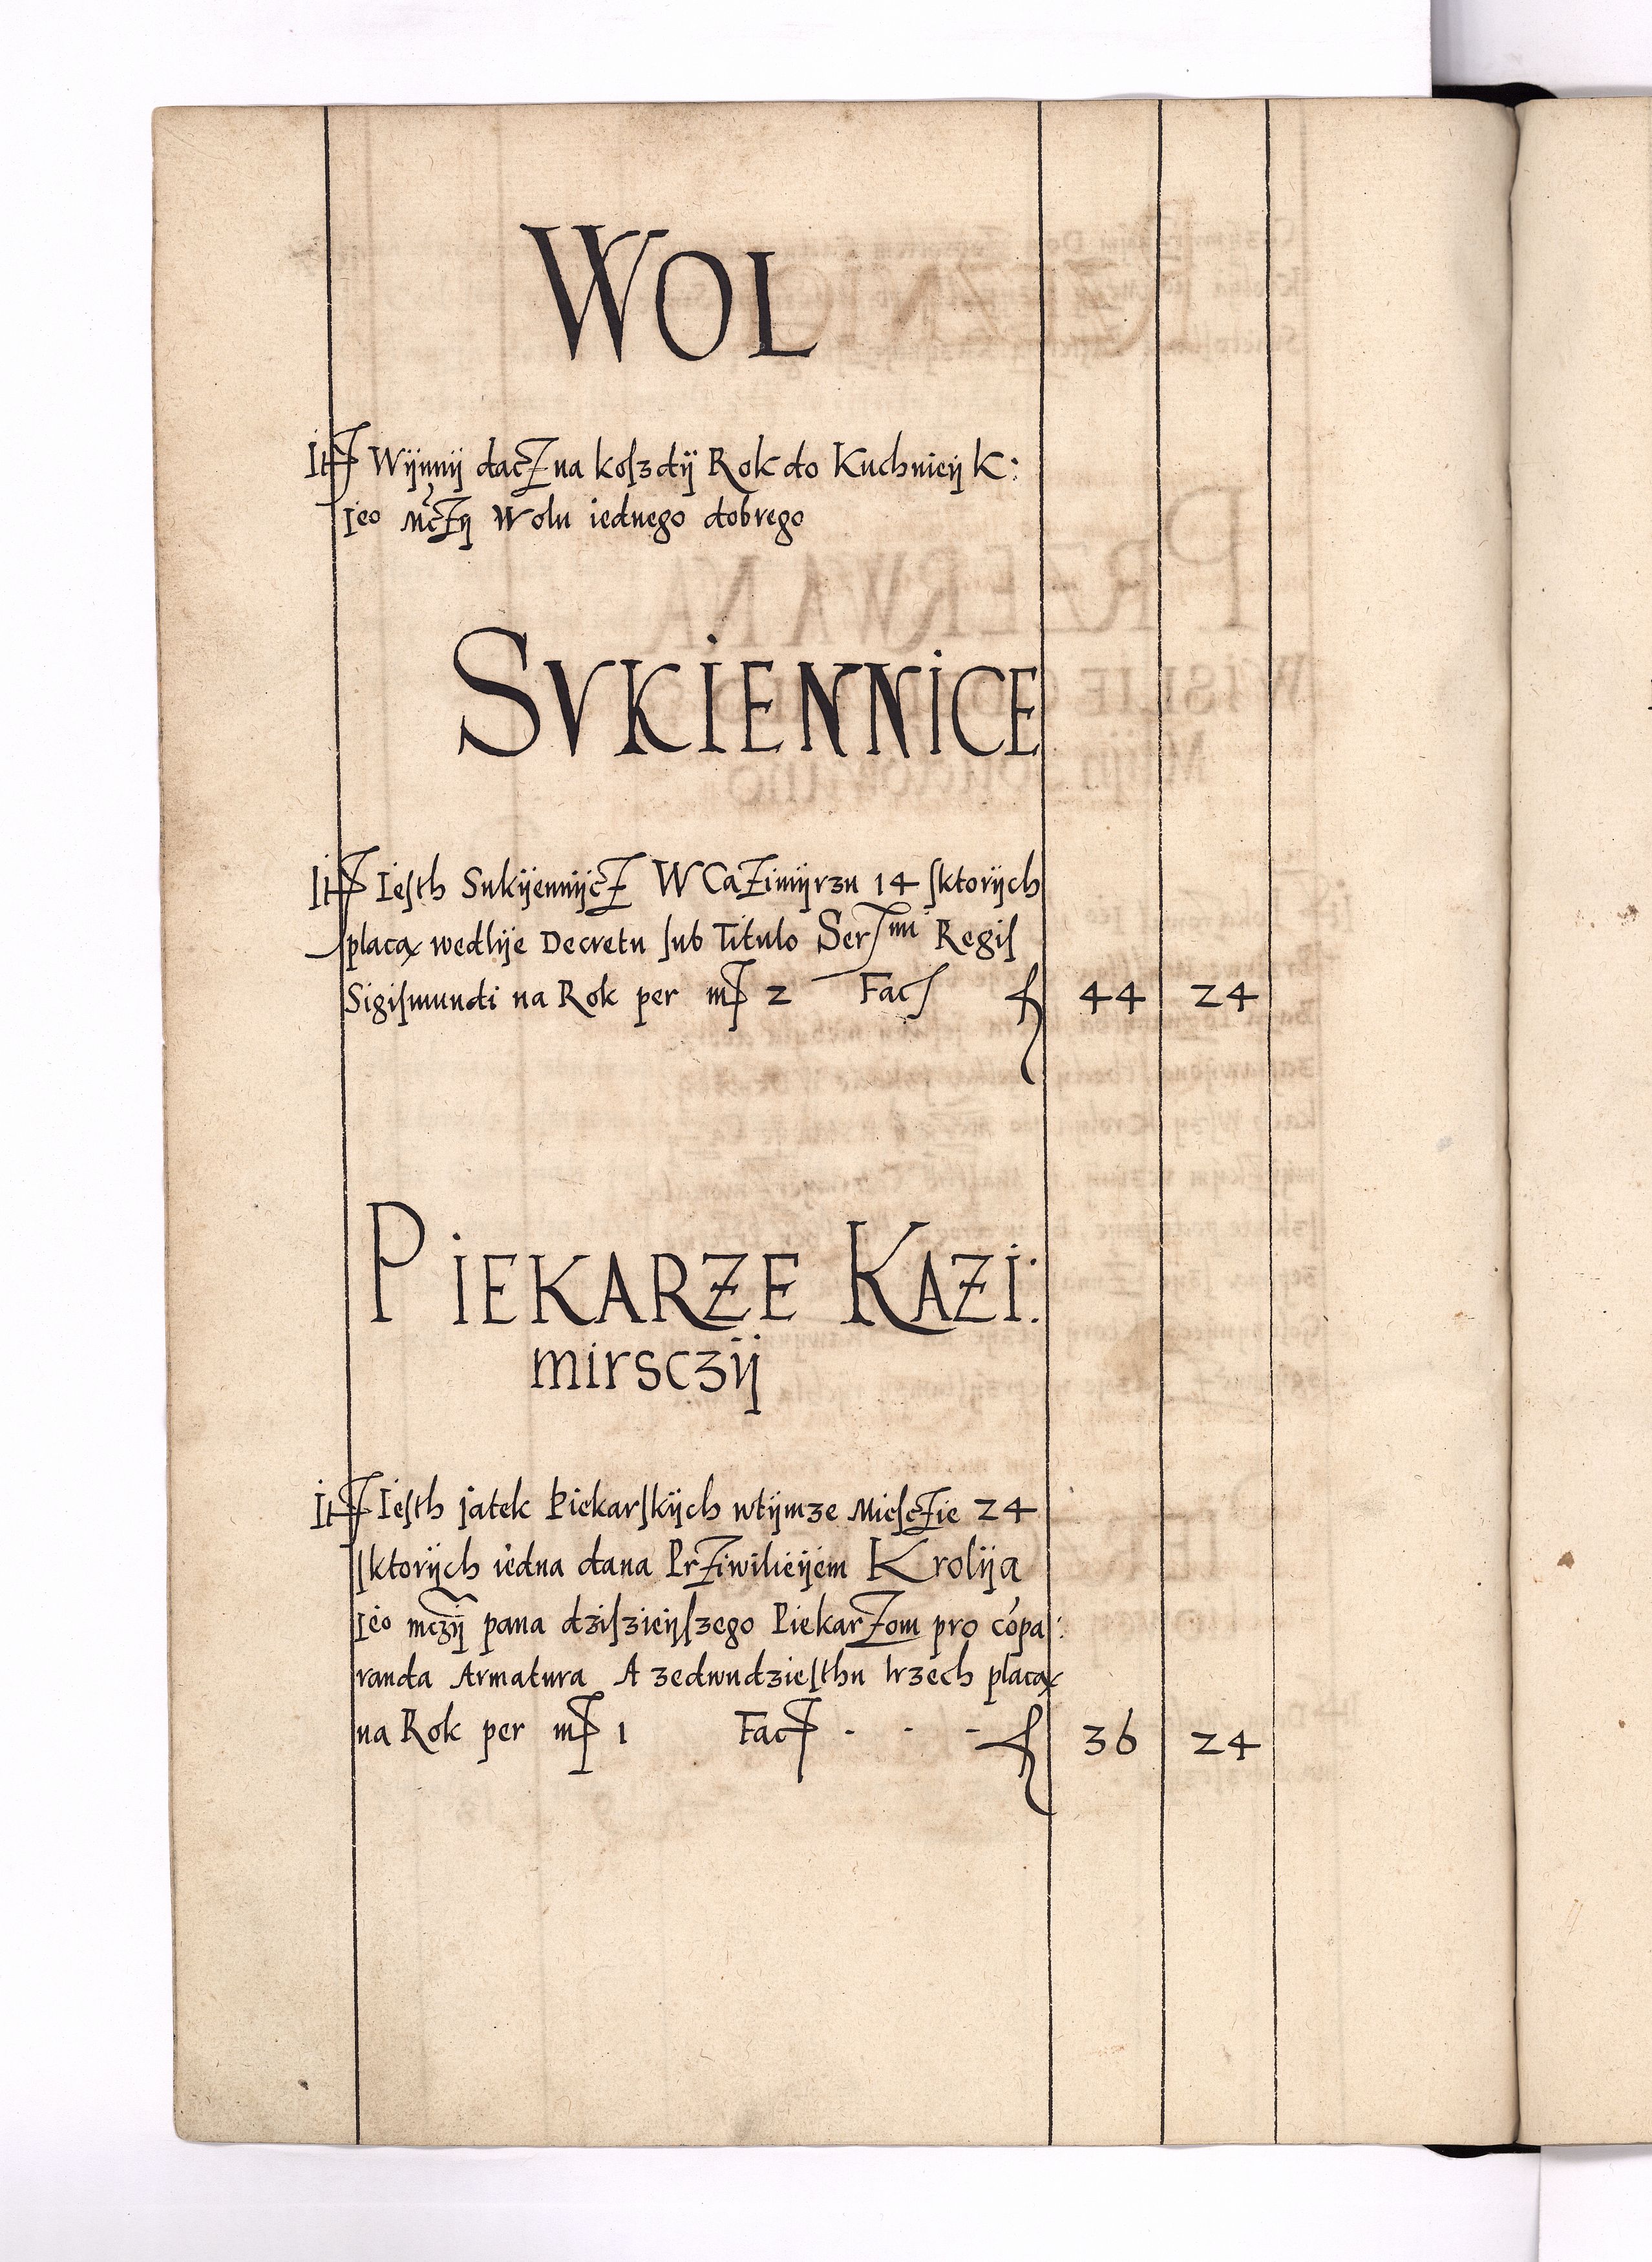 WOL
Itꝭ Wÿnnÿ dacż na koſzdÿ Rok do Kuchnieÿ K:
Ieo Mczÿ Wolu iednego dobrego
SVKIENNICE
Itꝭ Ieſth Sukÿennÿcż W Cazimÿrzu 14 ſktorÿch
placą wedlÿe Decretu ſub Titulo Serſmi Regiſ
Sigiſmundi na Rok per mꝭ 2 Facſ f 44 24
PIEKARZE KAZI:
mirsczÿ
Itꝭ Ieſth jatek Piekarſkÿch wtÿmze Mieſczie 24
ſktorÿch iedna dana Prziwilieÿem Krolÿa
Ieo mczÿ pana dziſzieÿſzego Piekarzom pro cōpa:
randa Armatura A zedwudzieſthu trzech placą
na Rok per mꝭ 1 Facꝭ - - - f 36 24